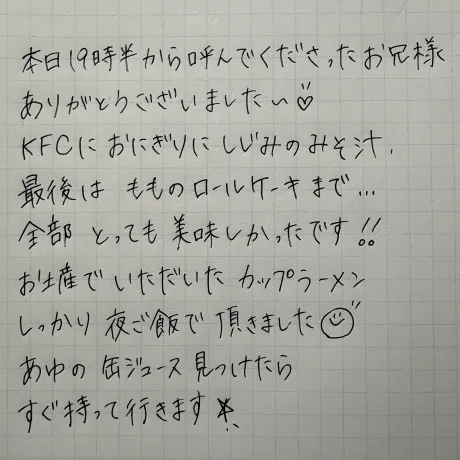 本日19時半から呼んでくださったお兄様
ありがとうございました〜♡
KFCにおにぎりにしじみのみそ汁、
最後は もものロールケーキまで…
全部 とっても 美味しかったです!!
お土産で いただいた カップラーメン
しっかり 夜ご飯で 頂きました☺
あゆの 缶ジュース 見つけたら
すぐ持って行きます